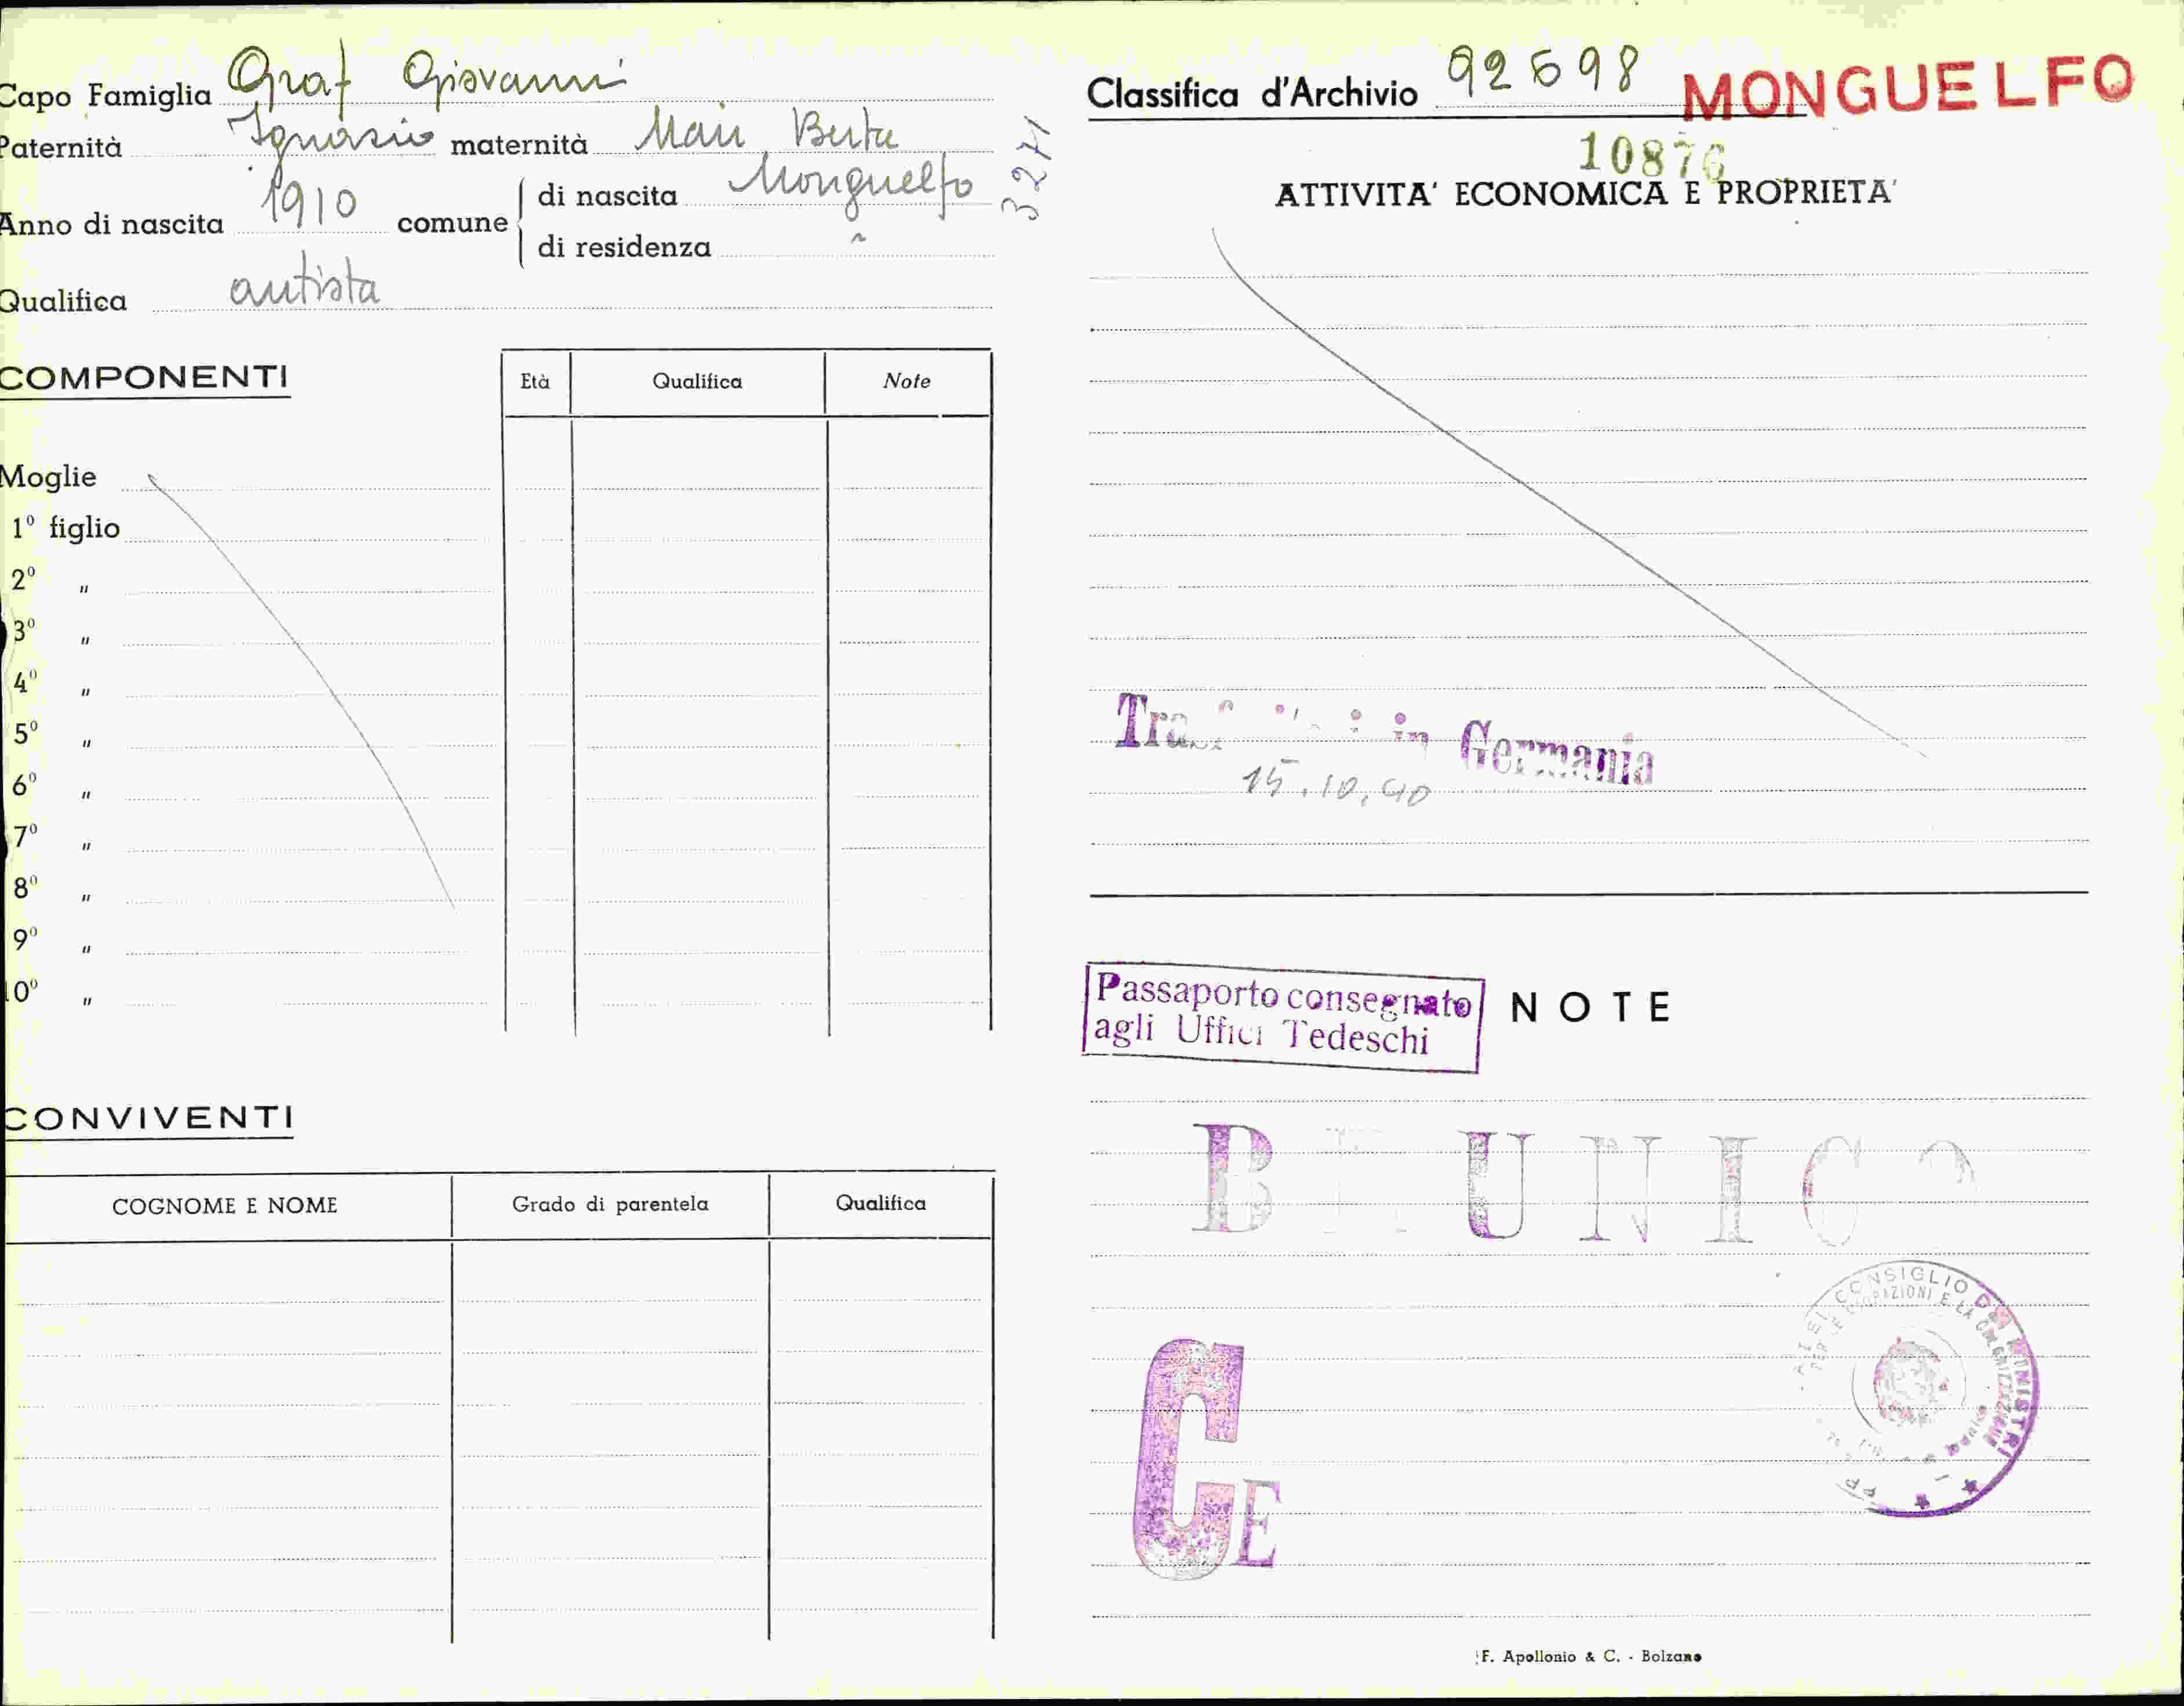 Capo Famiglia Graf Giovanni
Paternità Ignazio maternità Mair Berta
Anno di nascita 1910 comune di nascita Monguelfo
di residenza "
Qualifica autista
3271
COMPONENTI
Età Qualifica Note
Moglie
1º figlio
2º "
3º "
4º "
5º "
6º "
7º "
8º "
9º "
10º "
CONVIVENTI
COGNOME E NOME Grado di parentela Qualifica
Classifica d'Archivio 92698 MONGUELFO
10876
ATTIVITA' ECONOMICA E PROPRIETA'
in Germania
15.10.40
Passaporto consegnato
agli Uffici Tedeschi
NOTE
BRUNICO
CONSIGLIO DEI MINISTRI
E LA
CE
F. Apollonio & C. - Bolzano